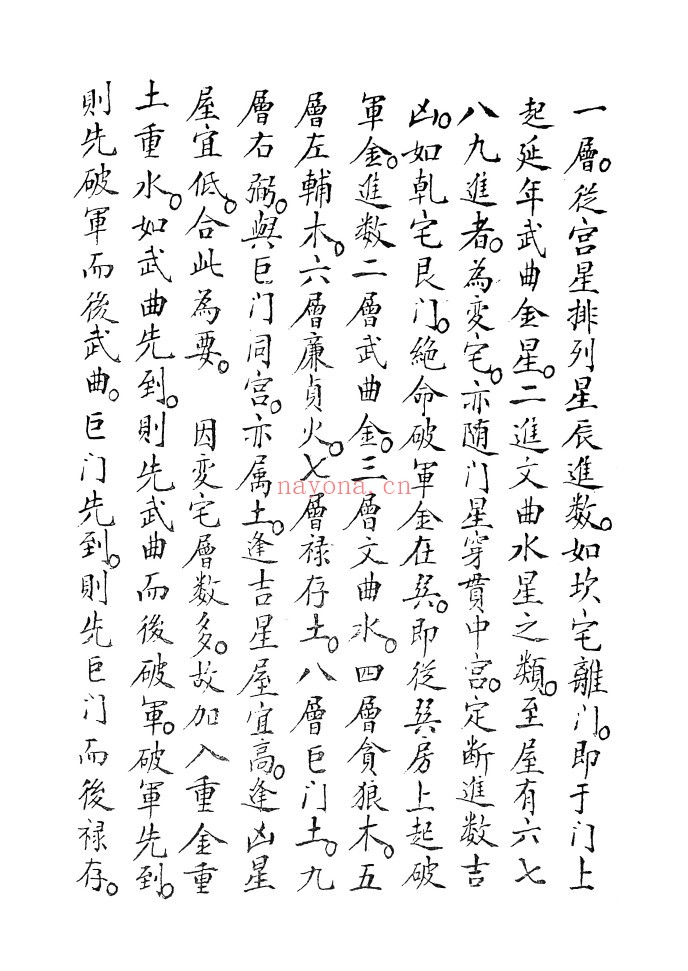 一層。從宮星排列星辰進数。如坎宅離门。即于门上
起延年武曲金星。二進文曲水星之類。至屋有六七
八九進者。為変宅。亦随门星穿貫中宮。定断進数吉
凶。如乹宅艮门。絶命破軍金在巽。即従巽房上起破
軍金。進数二層武曲金。三層文曲水。四層貪狼木。五
層左輔木。六層廉貞火。七層禄存土。八層巨门土。九
層右弼。與巨门同宮。亦属土。逢吉星屋宜高。逢凶星
屋宜低。合此為要。　因変宅層数多。故加入重金重
土重水。如武曲先到。則先武曲而後破軍。破軍先到。
則先破軍而後武曲。巨门先到。則先巨门而後禄存。
nayona.cn